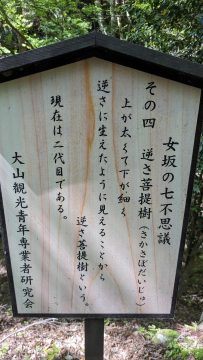 女坂の七不思議
その四　逆さ菩提樹（さかさぼだいじゅ）
上が太くて下が細く
逆さに生えたように見えることから
逆さ菩提樹という。
現在は二代目である。
大山観光青年専業者研究会